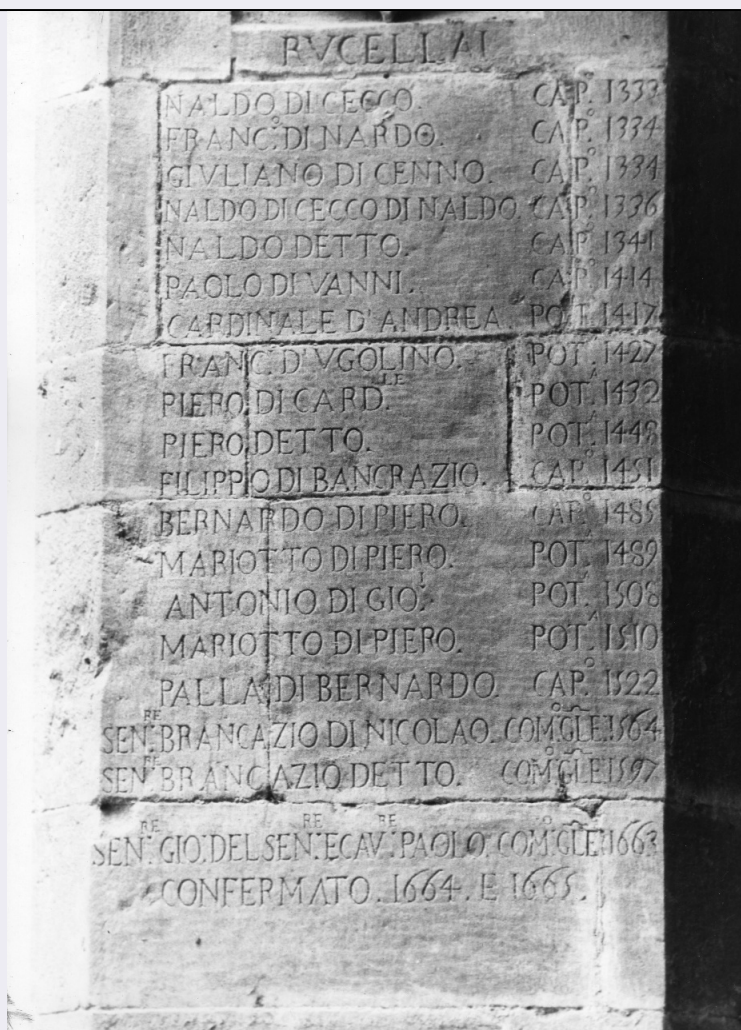 RVCELLAI
NALDO DI CECCO. CAP.º 1333
FRANC.º DI NARDO. CAP.º 1334
GIVLIANO DI CENNO. CAP.º 1334
NALDO DI CECCO DI NALDO. CAP.º 1336
NALDO DETTO. CAP.º 1341
PAOLO DI VANNI. CAP.º 1414
CARDINALE D'ANDREA POT. 1417
FRANC. D'VGOLINO. POT.ᴬ 1427
PIERO DI CARD.ᴸᴱ POT.ᴬ 1432
PIERO DETTO. POT.ᴬ 1448
FILIPPO DI BANCRAZIO. CAP.º 1451
BERNARDO DI PIERO. CAP.º 1485
MARIOTTO DI PIERO. POT.ᴬ 1489
ANTONIO DI GIO. POT.ᴬ 1508
MARIOTTO DI PIERO. POT.ᴬ 1510
PALLA DI BERNARDO. CAP.º 1522
SEN.ᴿᴱ BRANCAZIO DI NICOLAO. COM.º GLE 1564
SEN.ᴿᴱ BRANCAZIO DETTO. COM.º GLE 1597
SEN.ᴿᴱ GIO. DEL SEN.ᴿᴱ E CAV.ᴿᴱ PAOLO. COM.º GLE 1663
CONFERMATO. 1664. E 1665.